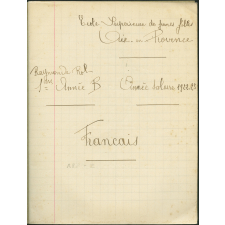 Ecole Supérieure de jeunes filles
Aix en Provence
Raymonde
1ère Année B Année scolaire 1922-23
Français